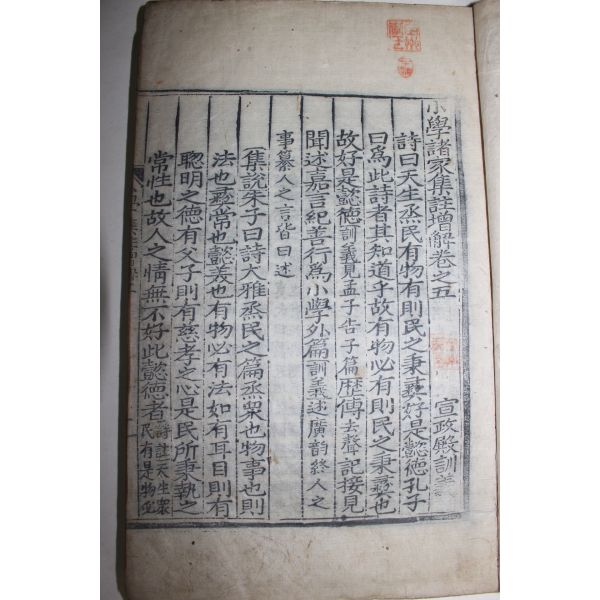 小學諸家集註增解卷之五
宣政殿訓義
詩曰天生烝民有物有則民之秉彝好是懿德孔子
曰爲此詩者其知道乎故有物必有則民之秉彝也
故好是懿德訓義見孟子告子篇歷傳去聲記接見
聞述嘉言紀善行爲小學外篇訓義述廣韵終人之
事纂人之言皆曰述
集說朱子曰詩大雅烝民之篇烝衆也物事也則
法也彝常也懿美也有物必有法如有耳目則有
聰明之德有父子則有慈孝之心是民所秉執之
常性也故人之情無不好此懿德者詩註天生衆
民有是物必